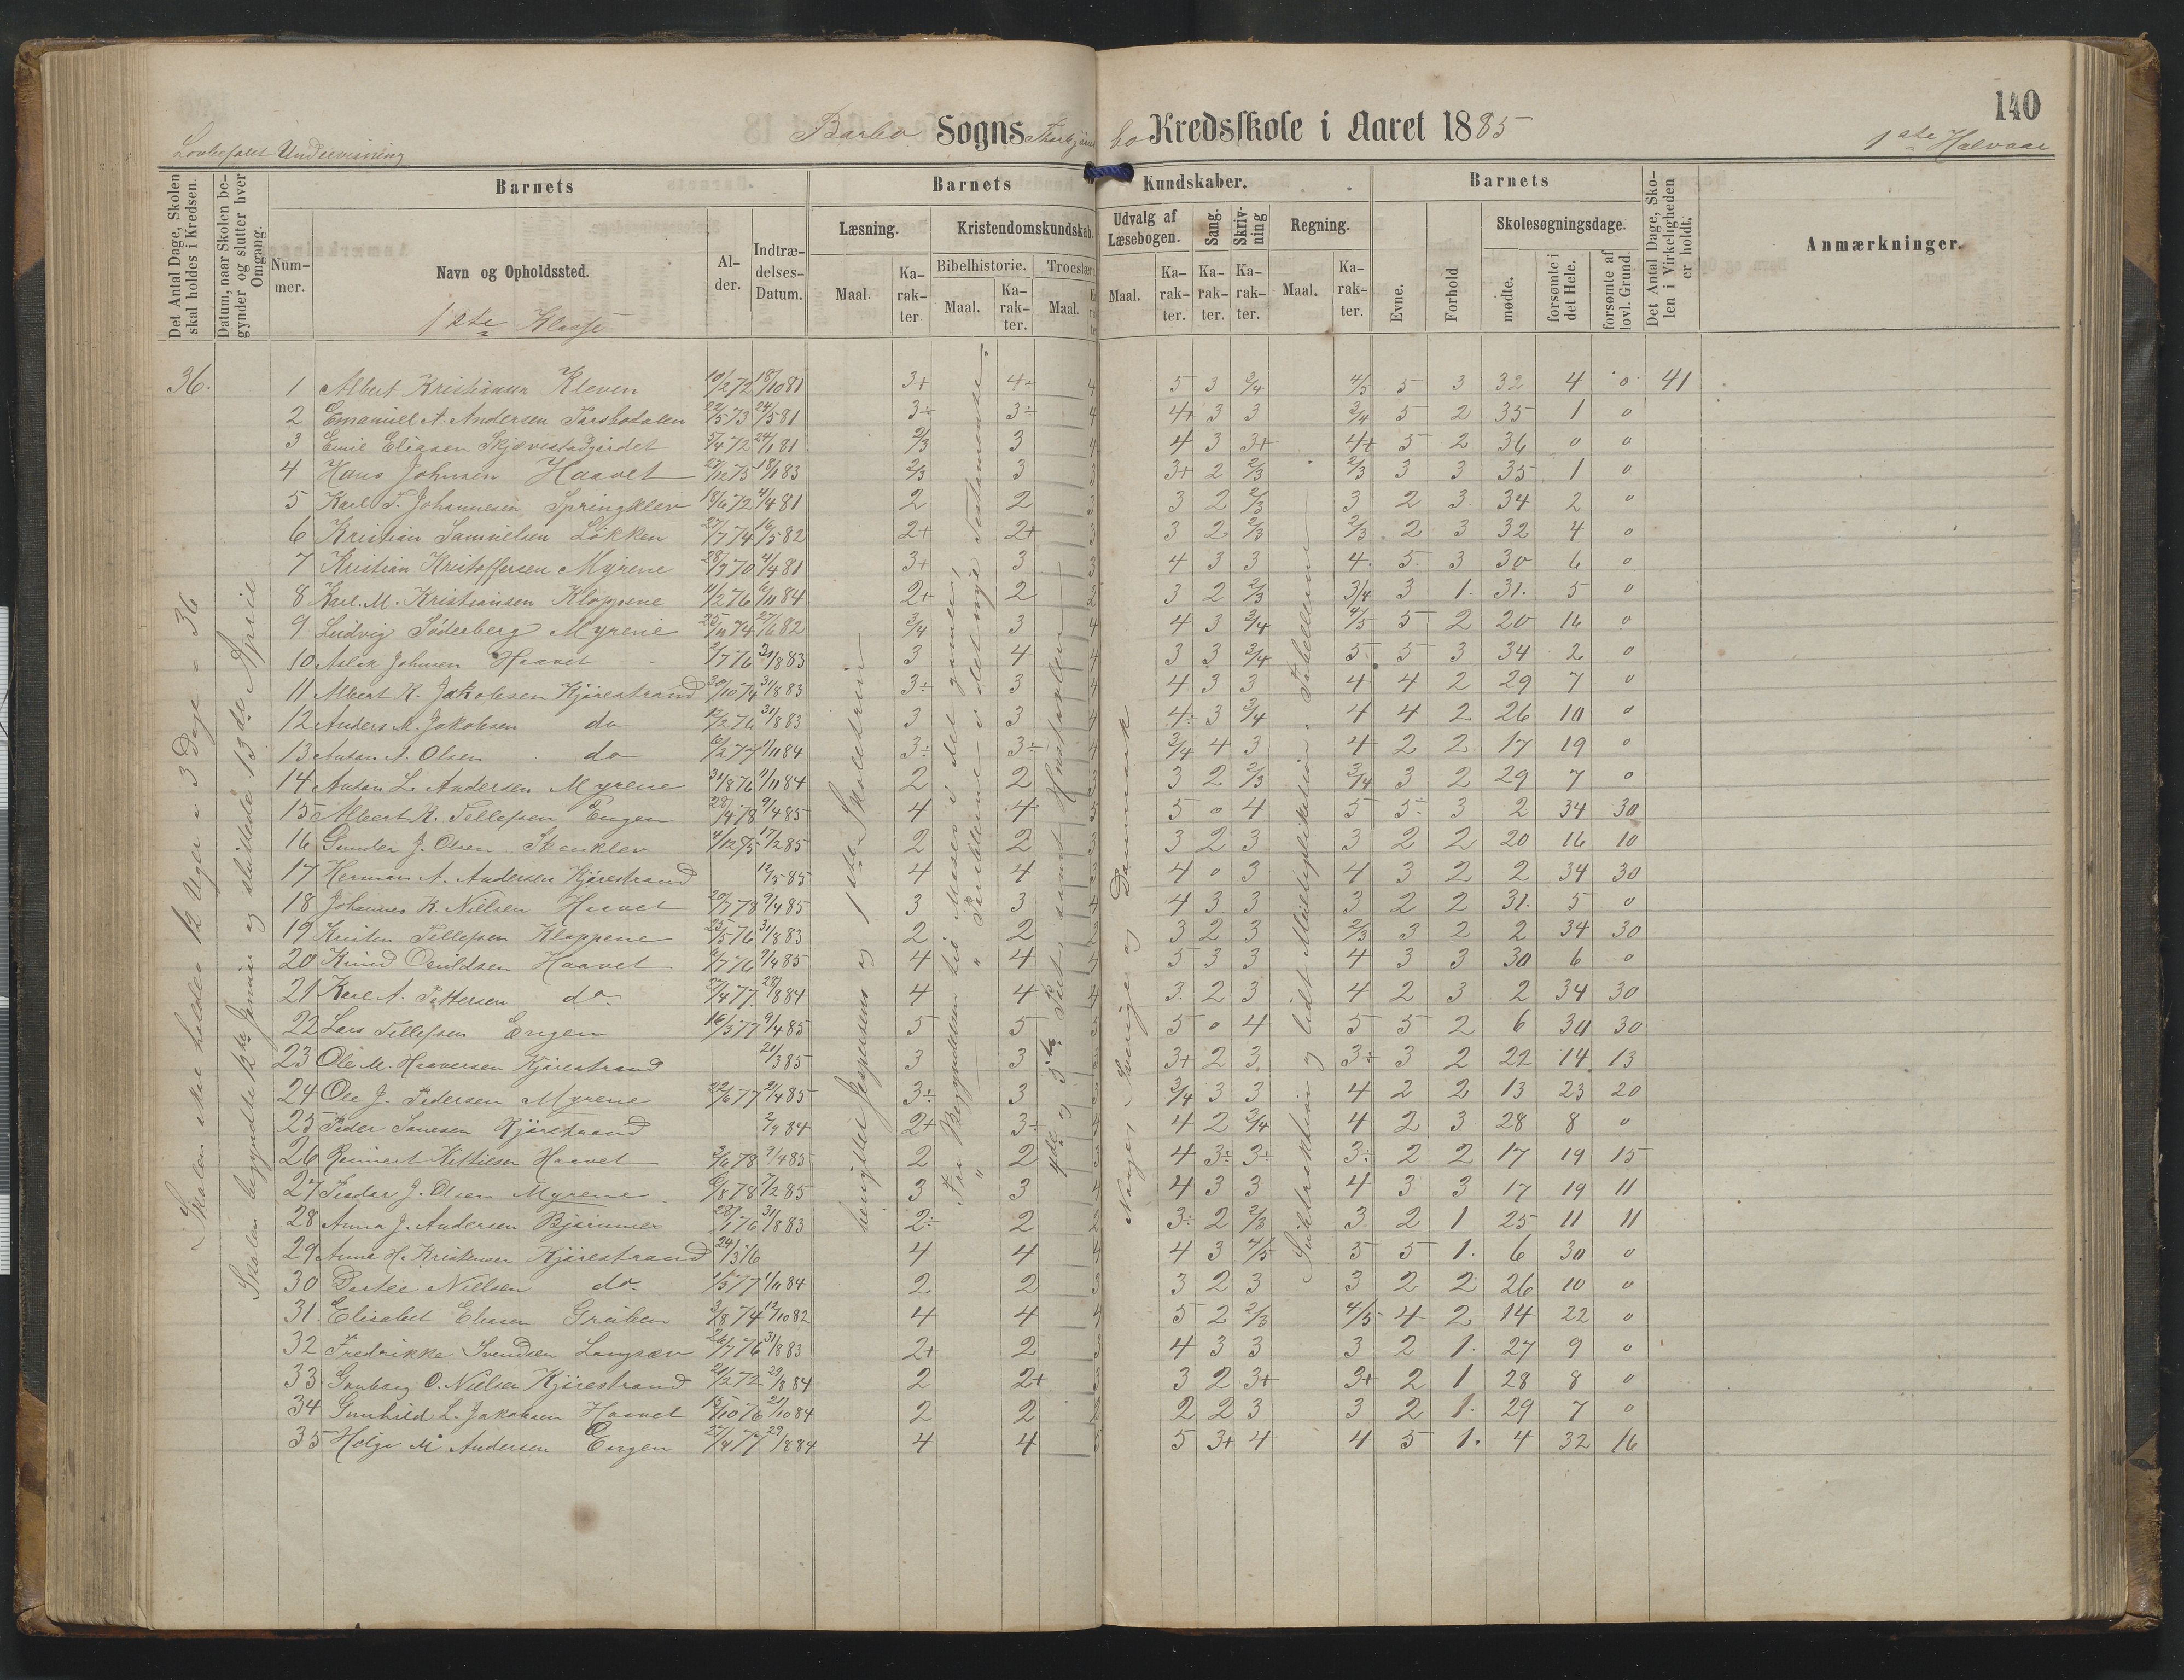 140
Barbo Sogns Thorbjörnsbo Kredsskole i Aaret 1885
Lovbefalet Undervisning
1ste Halvaar
Det Antal Dage, Skolen skal holdes i Kredsen.
Datum, naar Skolen begynder og slutter hver Omgang.
Barnets
Barnets Kundskaber.
Barnets
Det Antal Dage, Skolen i Virkeligheden er holdt.
Anmærkninger.
Nummer.
Navn og Opholdssted.
Alder.
Indtrædelses-Datum.
Læsning.
Kristendomskundskab.
Udvalg af Læsebogen.
Sang.
Skrivning
Regning.
Evne.
Forhold
Skolesøgningsdage.
Bibelhistorie.
Troeslære
Maal.
Karakter
Maal.
Karakter.
Maal.
Maal.
Karakter.
Karakter.
Karakter.
Maal.
Karakter.
mødte.
forsømte i det Hele.
forsømte af lovl. Grund.
1ste Klasse
36. 1 Albert Kristiansen Kleven 19/2 72 18/10 81 3+ 4÷ 4 5 3 3/4 4/5 5 3 32 4 0 41
2 Emanuel A. Andersen 22/5 73 24/5 81 3÷ 3÷ 4 4+ 3 3 3/4 5 2 35 1 0
3 Emil Eliasen 5/4 72 24/1 81 2/3 3 4 4 3 3+ 4+ 5 2 36 0 0
4 Hans Johnsen Haavet 27/12 73 18/1 83 2/3 3 3 3+ 2 2/3 2/3 3 3 35 1 0
5 Karl T. Johannesen Springklev 18/6 72 4/4 81 2 2 3 3 2 2/3 3 2 3 34 2 0
6 Kristian Samuelsen Løkken 27/7 74 16/5 82 2+ 2+ 3 3 2 2/3 2/3 2 3 32 4 0
7 Kristian Kristoffersen Myrene 28/9 70 4/4 81 3+ 3 3 4 3 3 4 5 3 30 6 0
8 Karl M. Kristiansen Kloppene 11/2 76 6/11 84 2+ 2 2 3 2 2/3 3/4 3 1. 31. 5 0
9 Ludvig Söderberg Myrene 25/11 74 27/6 82 3/4 3 4 4 3 3/4 4/5 5 2 20 16 0
10 Aslak Johnsen Haavet 2/7 76 31/8 83 3 4 4 3 3 3/4 5 5 3 34 2 0
11 Albert K. Jakobsen Kjörestrand 20/10 74 31/8 83 3÷ 3 4 4 3 3 4 4 2 29 7 0
12 Anders M. Jakobsen do 12/2 76 31/8 83 3 3 4 4÷ 3 3/4 4 4 2 26 10 0
13 Anton A. Olsen do 6/2 77 1/11 84 3÷ 3÷ 4 3/4 4 3 4 2 2 17 19 0
14 Anton L. Andersen Myrene 31/8 76 11/11 84 2 2 3 3 2 2/3 3/4 3 2 29 7 0
15 Albert R. Tellefsen Engen 28/4 78 9/4 85 4 4 5 5 0 4 5 5 3 2 34 30
16 Gunder J. Olsen Stenklev 4/12 75 17/2 85 2 2 3 3 2 3 3 2 2 20 16 10
17 Herman A. Andersen Kjörestrand 12/5 85 4 4 4 0 3 4 3 2 2 34 30
18 Johannes R. Nielsen Haavet 20/7 78 9/4 85 3 3 4 4 3 3 3 2 2 31. 5 0
19 Kristen Tellefsen Kloppene 25/5 76 31/8 83 2 2 2 3 2 3 2/3 3 2 2 34 30
20 Knud Osuldsen Haavet 6/7 76 9/4 85 4 4 4 5 3 3 4 3 3 30 6 0
21 Karl A. Pettersen do 27/4 77 28/8 84 4 4 4 3. 2 3 4 2 3 2 34 30
22 Lars Tellefsen Engen 16/3 77 9/4 85 5 5 5 5 0 4 5 5 2 6 34 30
23 Ole M. Haaversen Kjörestrand 21/3 85 3 3 3 3+ 2 3 3÷ 3 2 22 14 13
24 Ole J. Pedersen Myrene 22/6 77 21/4 85 3÷ 3 3 3/4 3 3 4 2 2 13 23 20
25 Peder Kjörestrand 2/9 84 2+ 3+ 4 4 2 3/4 4 2 3 28 8 0
26 Reinert Kittilsen Haavet 2/6 78 9/4 85 2 2 3 4 3÷ 3÷ 3÷ 2 2 17 19 15
27 Teodor J. Olsen Myrene 6/8 78 7/2 85 3 3 4 4 3 3 4 3 3 17 19 11
28 Anna J. Andersen 28/1 76 31/8 83 2÷ 2 2 3÷ 2 2/3 3 2 1 25 11 11
29 Anna H. Kristensen Kjörestrand 24/3 76 4 4 4 4 3 4/5 5 5 1. 6 30 0
30 Nielsen do 1/5 77 1/11 84 2 2 3 3 2 3 3 2 2 26 10 0
31 Elisabet 3/8 74 12/10 82 4 4 4 5 2 2/3 4/5 4 2 14 22 0
32 Fredrikke Svendsen Langsæv 26/7 76 31/8 83 2+ 2 3 4 3 3 3 2 1. 27 9 0
33 O. Nielsen Kjörestrand 21/2 72 29/8 84 2 2+ 3 3 2 3+ 3+ 2 1 28 8 0
34 Gunhild L. Jakobsen Haavet 15/10 76 21/10 84 2 2 2 2 2 3 3 2 1. 29 7 0
35 Helge M Andersen Engen 27/4 77 29/8 84 4 4 5 5 3+ 4 4 5 1. 4 32 16
Skolen skal holdes 12 Uger a 3 Dage = 36
Skolen begyndte 12te Januar og sluttede 13de April
benyttet Jespersens og 1ste Skoletrin
Fra Begyndelsen til Moses i det gamle,
" " Parablerne i det nye Testamente.
4de og 5te Part, samt Hustavlen
Norge, Sverige og Danmark
Subtraktion og lidt Multiplikation. Tabellerne